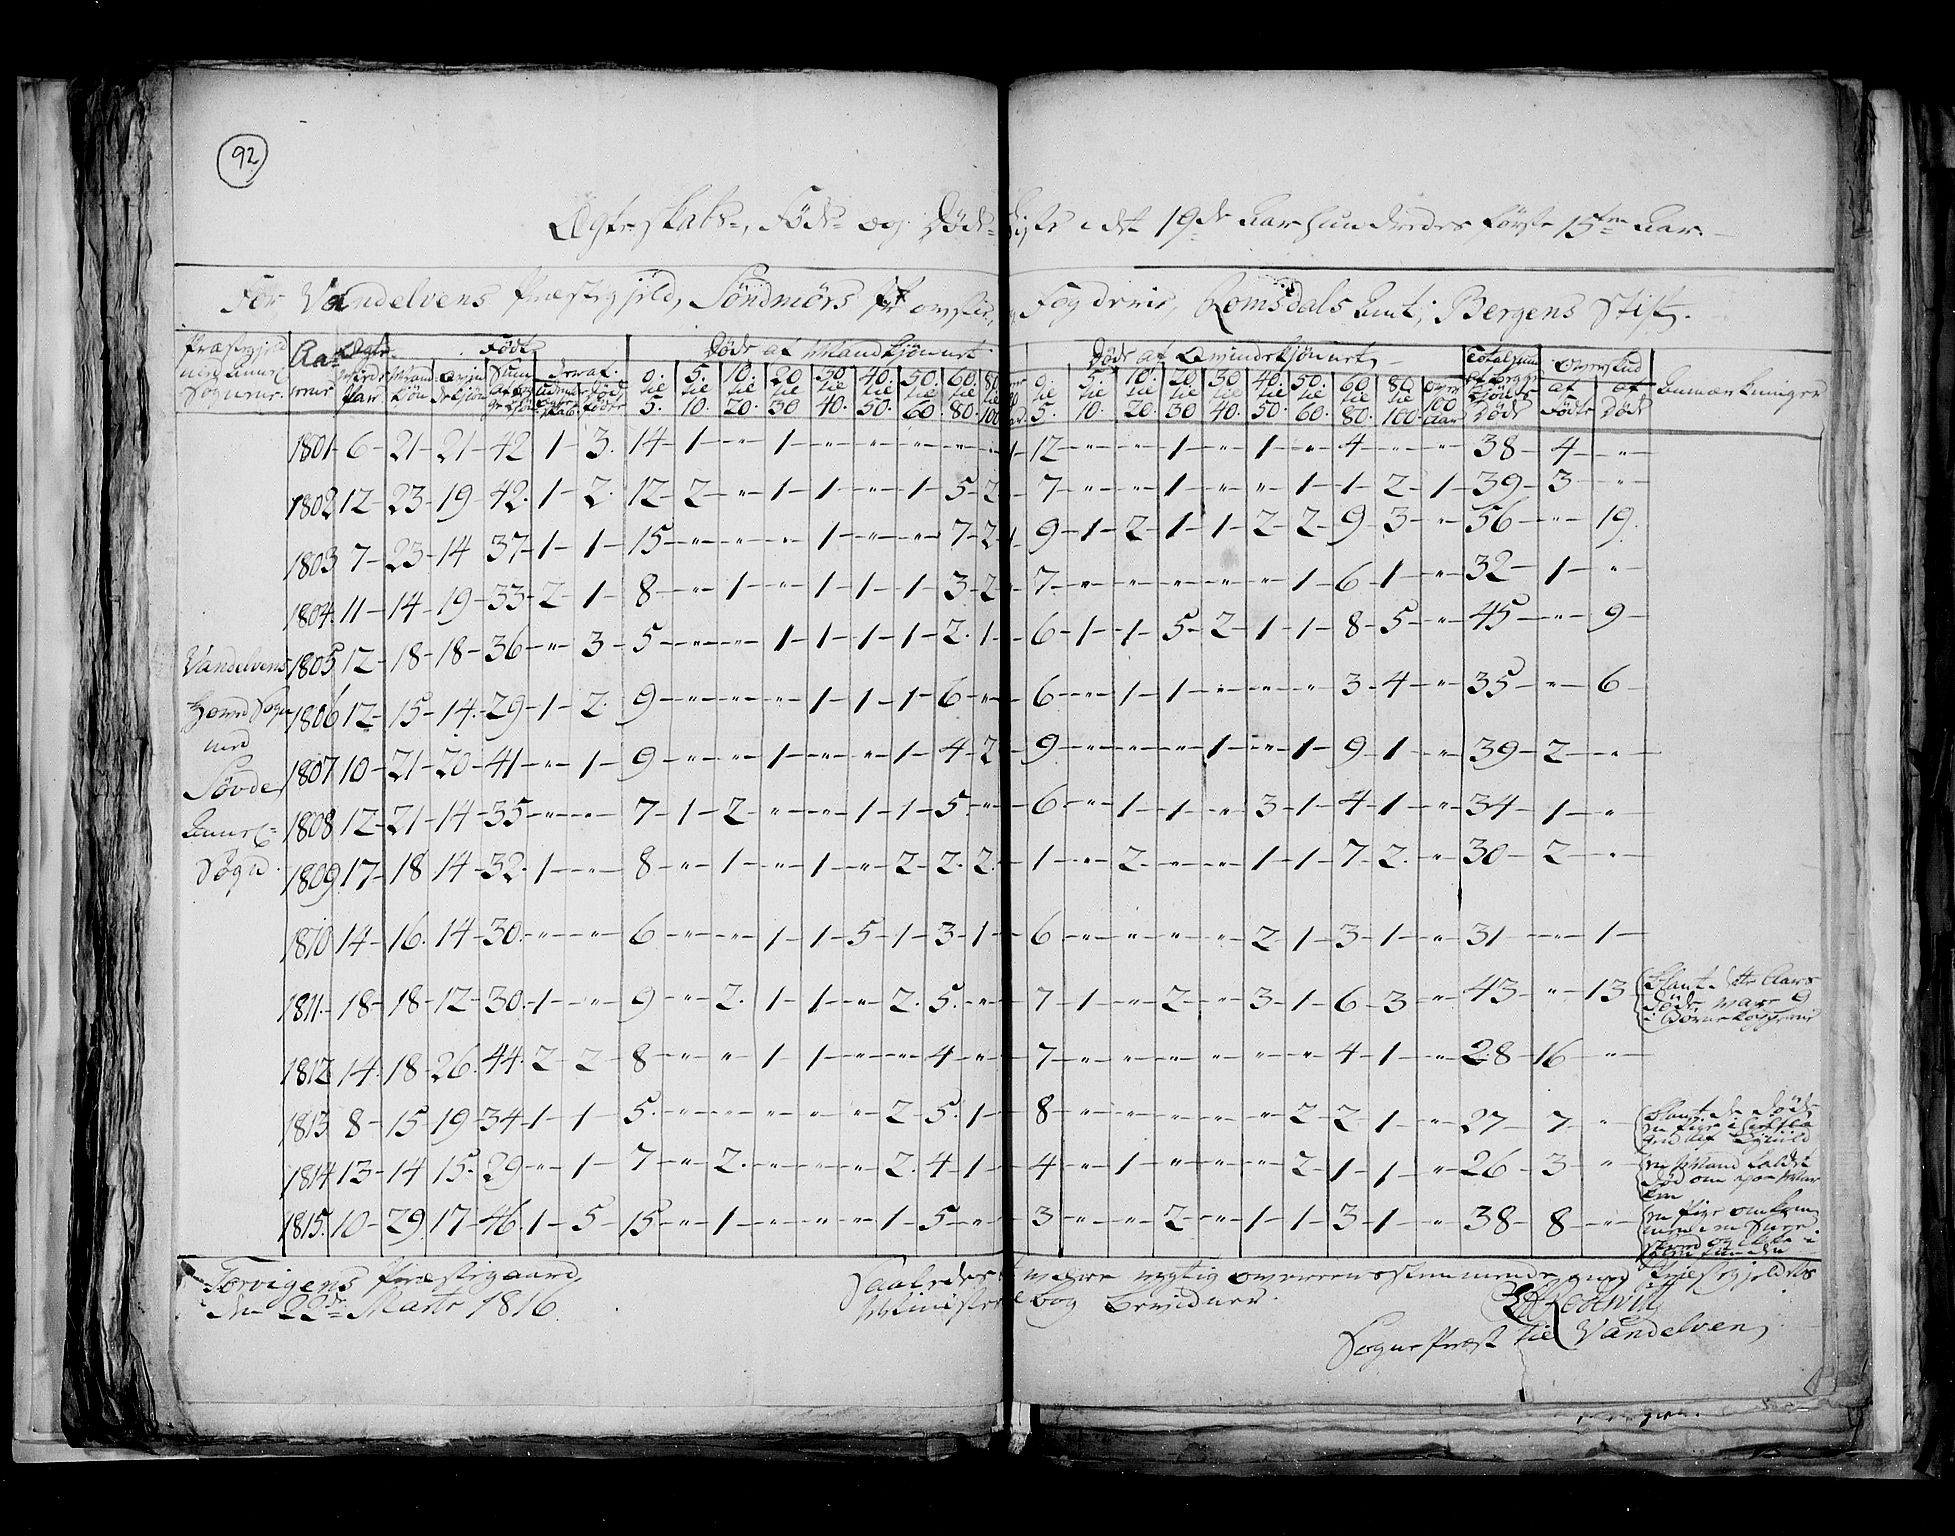 92
Ægteskabs-, Føds- og Døds-Liste i det 19de Aarhundredes første 15ten Aar.
For Vandelvens Præstegjeld, Søndmørs Fogderie, Romsdals Amt, Bergens Stift.
Præstegjeld Aa- Ægte- Født Døde af Mandkjønnet Døde af Qvindekjønnet Totalsum Overskud Anmærkninger
0 til 5. 5. til 10. 10. til 20. 20 til 30 30 til 40. 40. til 50. 50. til 60. 60. til 80. 80 100 0. til 5. 5. til 10. 10. til 20. 20 til 30 30 til 40. 40. til 50. 50. til 60. 60 til 80. 80 til 100 over 100 Aar Døde af Fødte af Døde
1801 - 6 - 21 - 21 - 42 - 1 - 3. 14 - 1 - " - 1 - " - " - " - " - " - 1 - 12 - " - " - 1 - " - 1 - " - 4 - " - " - 38 - 4 - "
1802 - 12 - 23 - 19 - 42. 1 - 2. 12 - 2 - " - 1 - 1 - " - 1 - 5 - 2 - 7 - " - " - 1 - " - " - 1 - 1 - 2 - 1 - 39 - 3 - "
1803 - 7 - 23 - 14 - 37 - 1 - 1 - 15 - " - " - " - 1 - " - " - 7 - 2 - 1 - 9 - 1 - 2 - 1 - 1 - 2 - 2 - 9 - 3 - " - 56 - " - 19.
1804. 11 - 14 - 19 - 33 - 2 - 1 - 8 - " - 1 - " - 1 - 1 - 1 - 3 - 2 - 7 - " - " - " - " - " - 1 - 6 - 1 - " - 32 - 1 - "
1805 12 - 18 - 18 - 36 - " - 3 - 5 - " - " - 1 - 1 - 1 - 1 - 2. 1 - 6 - 1 - 1 - 5 - 2 - 1 - 1 - 8 - 5 - " - 45 - " - 9 -
Vandelvens
1806 12 - 15 - 14. 29 - 1 - 2. 9 - " - " - " - 1 - 1 - 1 - 6 - " - 6 - " - 1 - 1 - " - " - " - 3 - 4 - " - 35 - " - 6 -
Hoved Sogn
med
1807 10 - 21 - 20 - 41 - " - 1 - 9 - " - " - 1 - " - " - 1 - 4 - 2 - 9. " - " - " - 1 - " - 1 - 9 - 1 - " - 39 - 2 - "
Søvde
1808 12 - 21 - 14 - 35 - " - " - 7 - 1 - 2 - " - " - 1 - 1 - 5 - " - 6 - " - 1 - 1 - " - 3 - 1 - 4 - 1 - " - 34 - 1 - "
Annex-
Sogn.
1809 17 - 18 - 14 - 32. 1 - " - 8 - " - 1 - " - 1 - " - 2 - 2. 2. 1 - " - 2 - " - " - 1 - 1 - 7 - 2. " - 30 - 2 - "
1810 14 - 16. 14 - 30. " - " - 6 - " - " - 1 - 1 - 5 - 1 - 3 - 1 - 6 - " - " - " - " - 2 - 1 - 3 - 1 - " - 31 - " - 1 -
1811. 18 - 18 - 12 - 30. 1 - " - 9 - " - 2. 1 - 1 - " - 2. 5. " - 7 - 1 - " - 2 - " - 3 - 1 - 6 - 3 - " - 43 - " - 13
Blant dette Aars
Døde vare 9
i Børnekopperne
1812 14. 18 - 26. 44. 2 - 2 - 8 - " - " - 1 - 1 - " - " - 4 - " - 7 - " - " - " - " - " - " - 4 - 1 - " - 28 - 16 - "
1813. 8 - 15 - 19 - 34 - 1 - 1 - 5. " - " - " - " - " - 2 - 5. 1 - 8 - " - " - " - " - " - 2 - 2 - 1 - " - 27 - 7 - "
Blant de Døde
1814 13 - 14 - 15. 29 - " - 1 - 7 - " - 2. " - " - " - 2. 4 - 1 - 4 - " - 1 - " - " - " - 2 - 1 - 1 - " - 26 - 3 - "
en Mand faldt
død om paa
1815. 10 - 29 - 17 - 46. 1 - 5 - 15 - " - 1 - " - " - " - 1 - 5 - " - 3 - " - " - 2 - " - 1 - 1 - 3 - 1 - " - 38 - 8 - "
en Pige omkom
Torvigens Præstegaard,
den 22de Marts 1816.
Saaledes at være rygtig overeensstemmende med Præstegjeldets
Ministerialbog bevidner.
Sogne Præst til Vandelven,